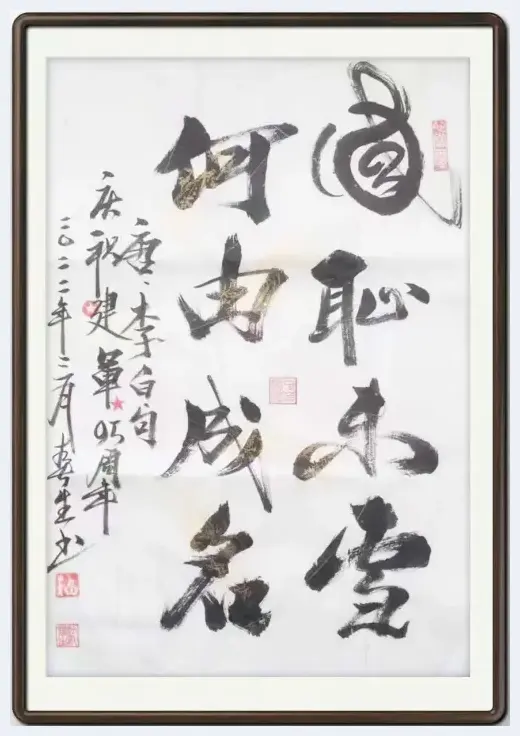 國耻未雪
何由成名
唐、李白句
庆祝建軍95周年
二〇二二年三月春生书